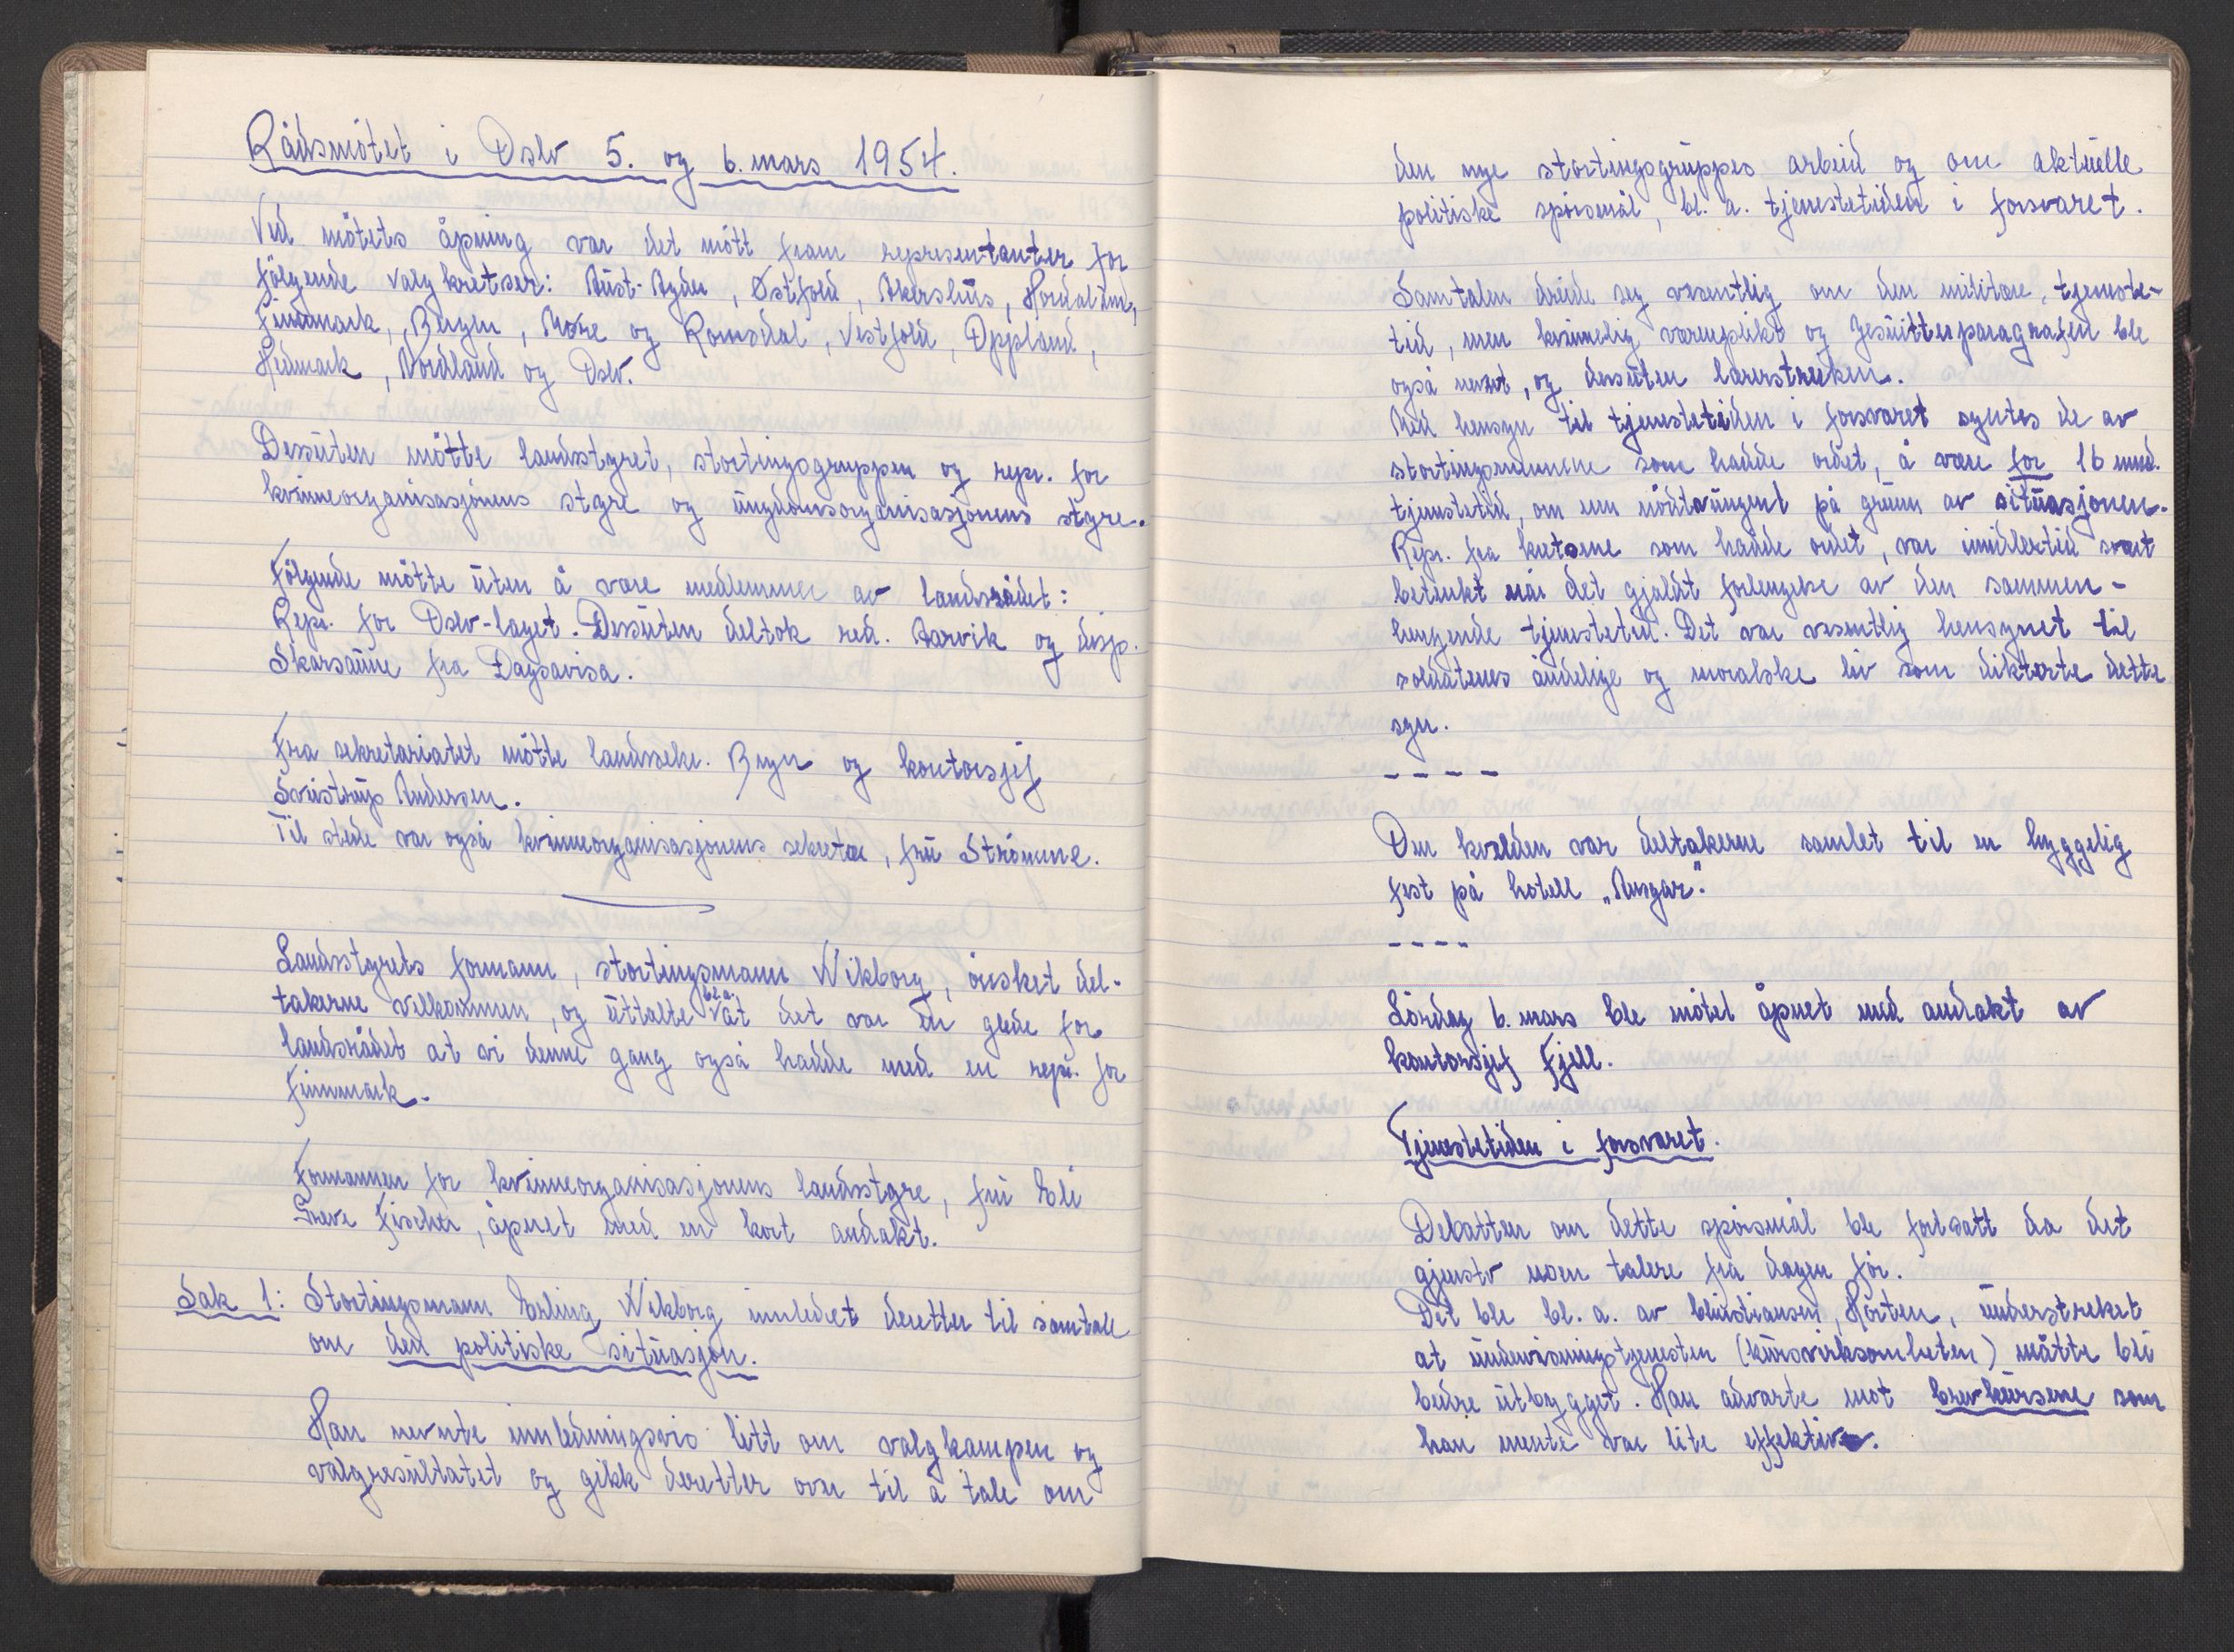 Rådsmötet i Oslo 5. og 6. mars 1954.
Ved mötets åpning var det mött fram representanter for
fölgende valgkretser: Aust-Agder, Østfold, Akershus, Hordaland,
Finnmark, Bergen, Møre og Romsdal, Vestfold, Oppland,
Hedmark, Nordland og Oslo.
Dessuten mötte landsstyret, stortingsgruppen og repr. for
kvinneorganisasjonens styre og ungdomsorganisasjonens styre.
Fölgende mötte uten å være medlemmer av landsrådet:
Repr. for Oslo-laget. Dessuten deltok red. Aarvik og disp.
Skarsaune fra Dagsavisa.
Fra sekretariatet mötte landssekr. Bryn og kontorsjef
Svistrup Andersen.
Til stede var også kvinneorganisasjonens sekretær, fru Strömme.
Landsstyrets formann, stortingsmann Wikborg, önsket del-
takerne velkommen, og uttalte bl.a. at det var en glede for
landsrådet at vi denne gang også hadde med en repr. for
Finnmark.
Formannen for kvinneorganisasjonens landsstyre, fru Eli
Greve Fischer, åpnet med en kort andakt.
Sak 1: Stortingsmann Erling Wikborg innledet deretter til samtale
om den politiske situasjon.
Han nevnte innledningsvis litt om valgkampen og
valgresultatet og gikk deretter over til å tale om
den nye stortingsgruppes arbeid og om aktuelle
politiske spörsmål, bl. a. tjenestetiden i forsvaret.
Samtalen dreide seg vesentlig om den militære tjeneste-
tid, men kvinnelig verneplikt og Jesuitterparagrafen ble
også nevnt, og dessuten lærerstreiken.
Med hensyn til tjenestetiden i forsvaret syntes de av
stortingsmennene som hadde ordet, å være for 16 mnd.
tjenestetid, om enn nödtvungent på grunn av situasjonen.
Repr. fra kretsene som hadde ordet, var imidlertid svært
betenkt når det gjaldt forlengelse av den sammen-
hengende tjenestetid. Det var vesentlig hensynet til
soldatenes åndelige og moralske liv som dikterte dette
syn.
- - - -
Om kvelden var deltakerne samlet til en hyggelig
fest på hotell „Ansgar".
- - - -
Lördag 6. mars ble mötet åpnet med andakt av
kontorsjef Fjell.
Tjenestetiden i forsvaret.
Debatten om dette spörsmål ble fortsatt da det
gjensto noen talere fra dagen för.
Det ble bl. a. av Christiansen, Horten, understreket
at undervisningstjenesten (kursvirksomheten) måtte bli
bedre utbygget. Han advarte mot brevkursene som
han mente var lite effektive.